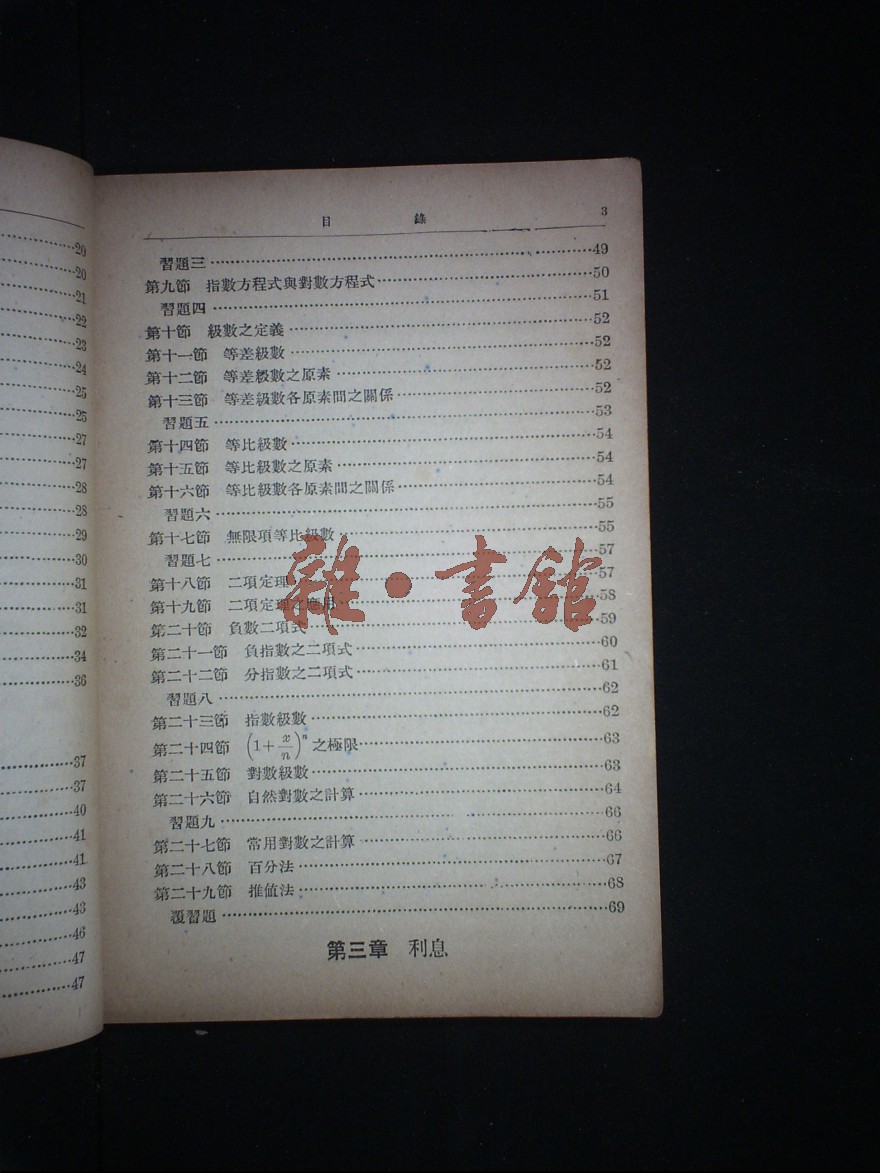 20
20
21
22
23
24
25
25
27
27
28
28
29
30
31
31
32
34
36
37
37
40
41
41
43
43
46
47
47
目 錄 3
習題三……49
第九節 指數方程式與對數方程式……50
習題四……51
第十節 級數之定義……52
第十一節 等差級數……52
第十二節 等差級數之原素……52
第十三節 等差級數各原素間之關係……52
習題五……53
第十四節 等比級數……54
第十五節 等比級數之原素……54
第十六節 等比級數各原素間之關係……54
習題六……55
第十七節 無限項等比級數……55
習題七……57
第十八節 二項定理……57
第十九節 二項定理之應用……58
第二十節 負數二項式……59
第二十一節 負指數之二項式……60
第二十二節 分指數之二項式……61
習題八……62
第二十三節 指數級數……62
第二十四節 (1+x/n)^n 之極限……63
第二十五節 對數級數……63
第二十六節 自然對數之計算……64
習題九……66
第二十七節 常用對數之計算……66
第二十八節 百分法……67
第二十九節 推値法……68
覆習題……69
第三章 利息
雜·書館